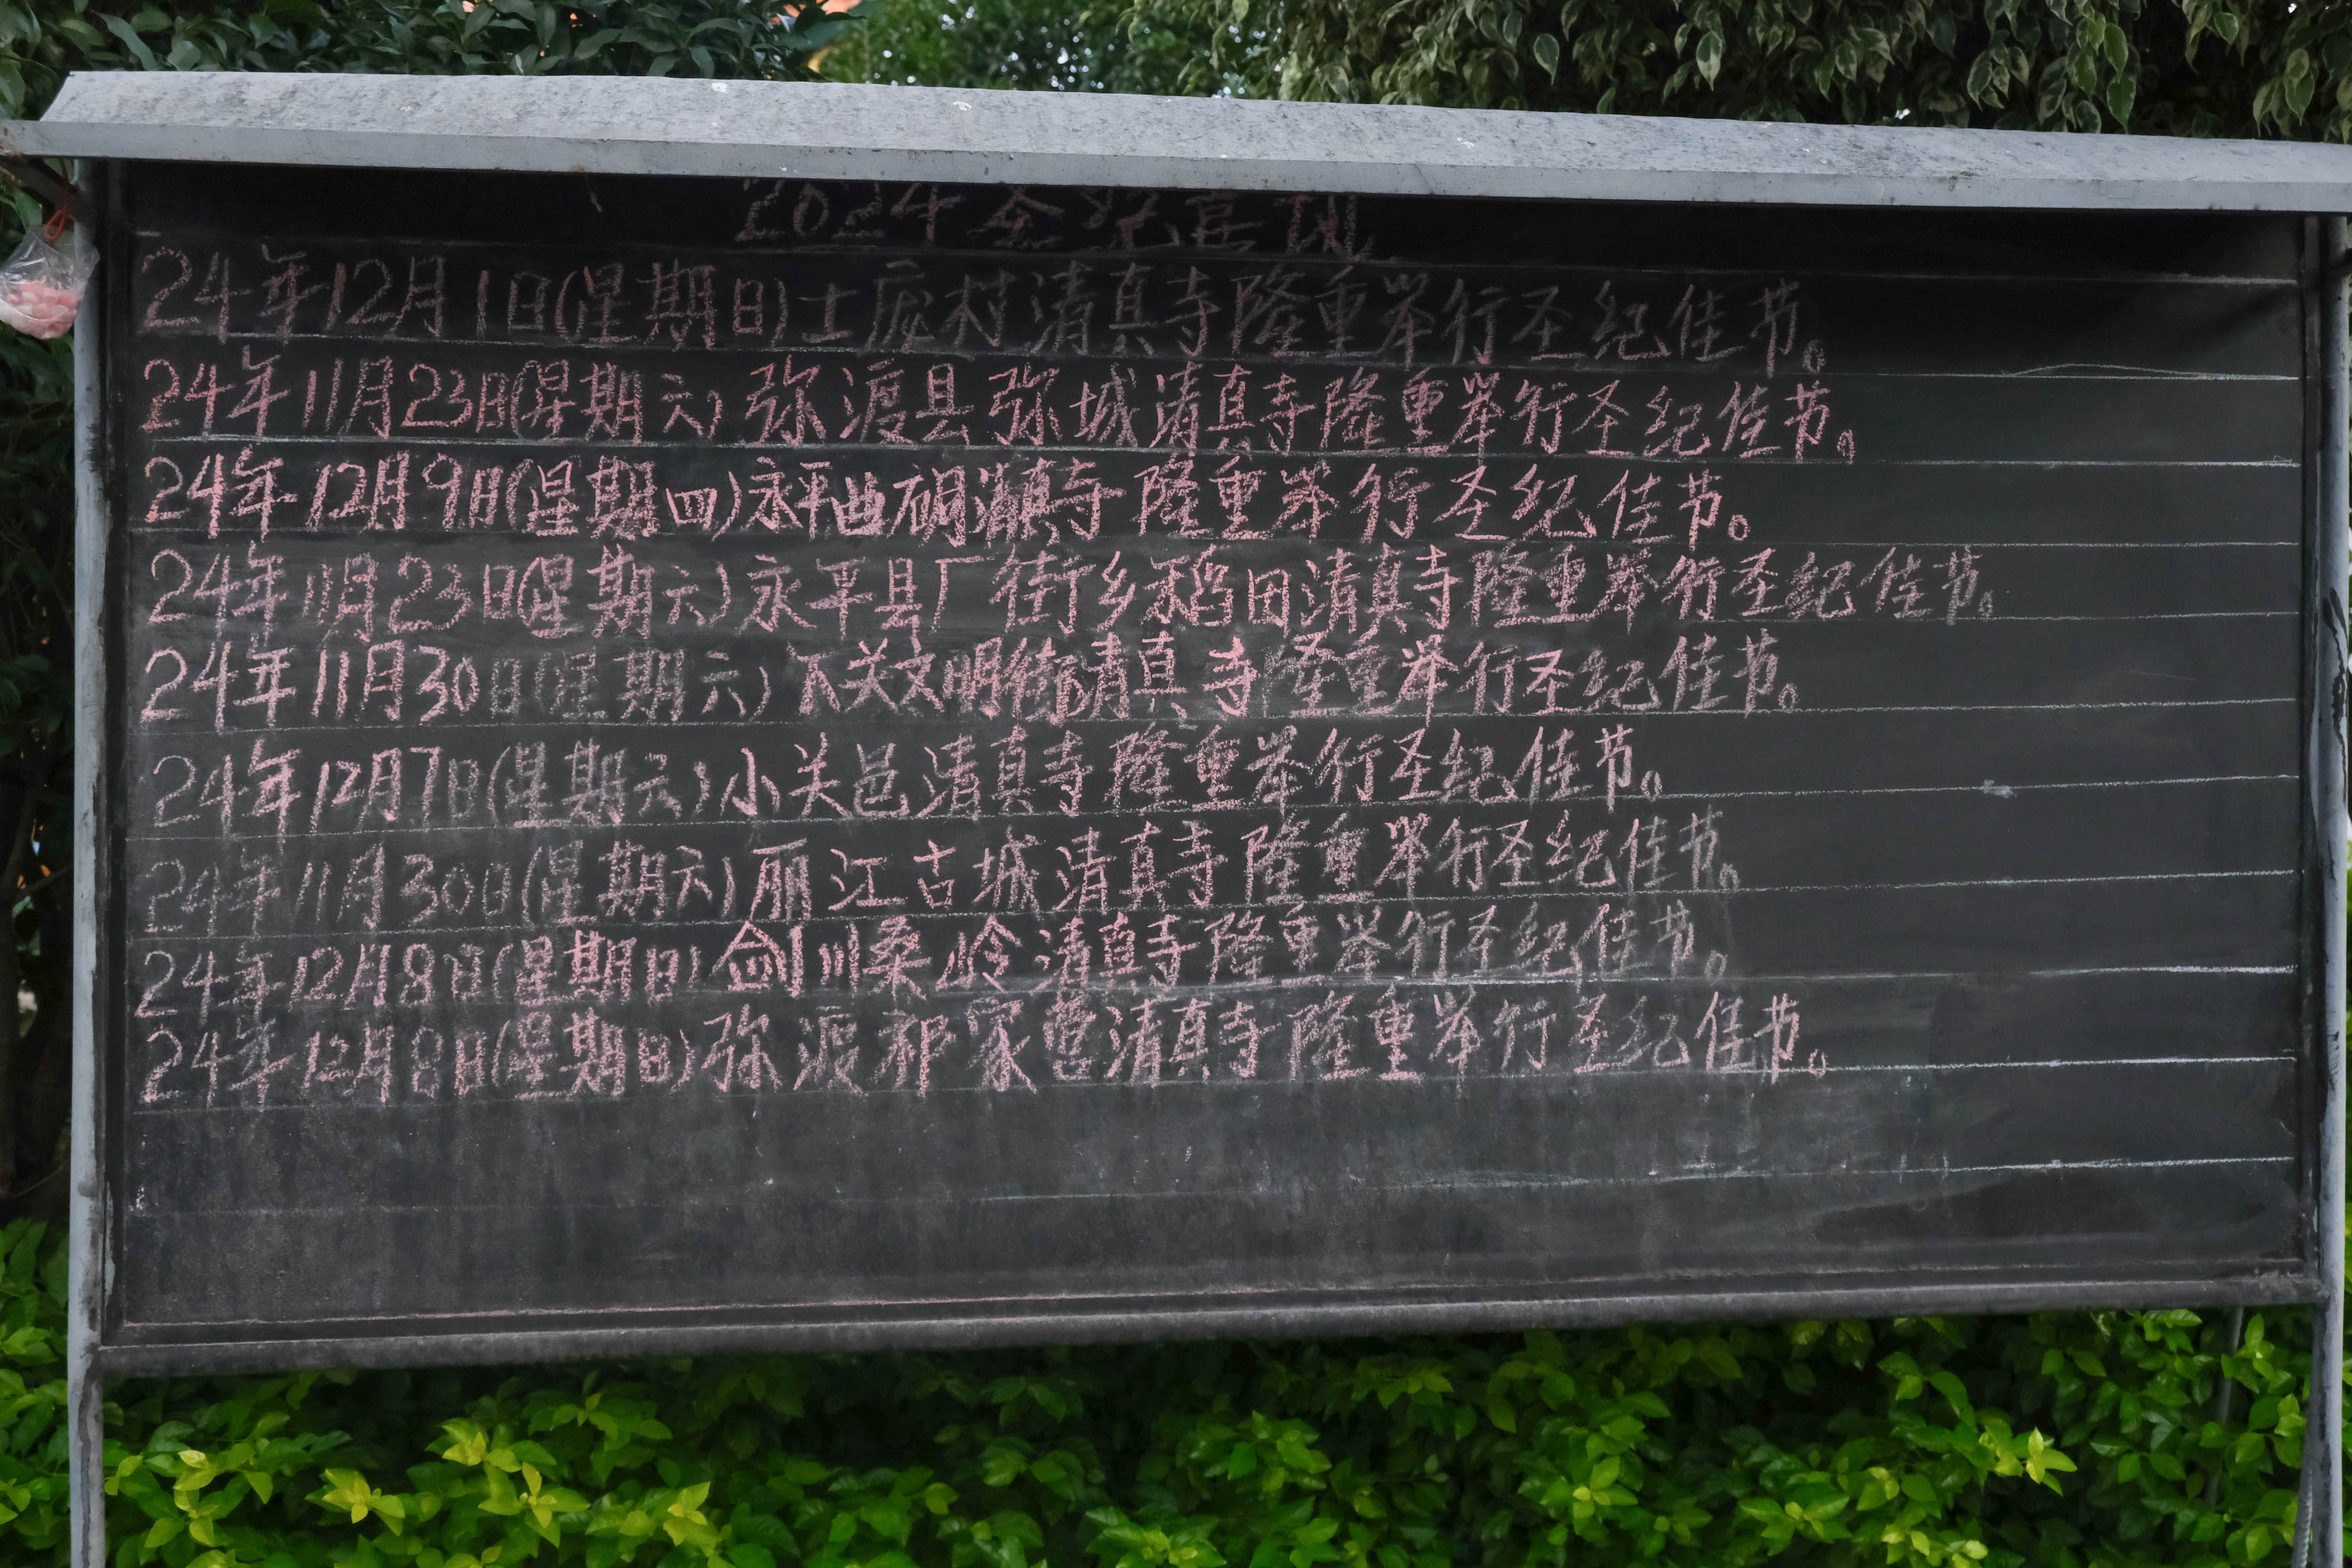 2024年圣纪喜讯
24年12月1日(星期日)士庞村清真寺隆重举行圣纪佳节。
24年11月23日(星期六)弥渡县弥城清真寺隆重举行圣纪佳节。
24年12月9日(星期四)永平曲硐清真寺隆重举行圣纪佳节。
24年11月23日(星期六)永平县厂街乡稻田清真寺隆重举行圣纪佳节。
24年11月30日(星期六)下关文明街清真寺隆重举行圣纪佳节。
24年12月7日(星期六)小关邑清真寺隆重举行圣纪佳节。
24年11月30日(星期六)丽江古城清真寺隆重举行圣纪佳节。
24年12月8日(星期日)剑川桑岭清真寺隆重举行圣纪佳节。
24年12月8日(星期日)弥渡祁家营清真寺隆重举行圣纪佳节。